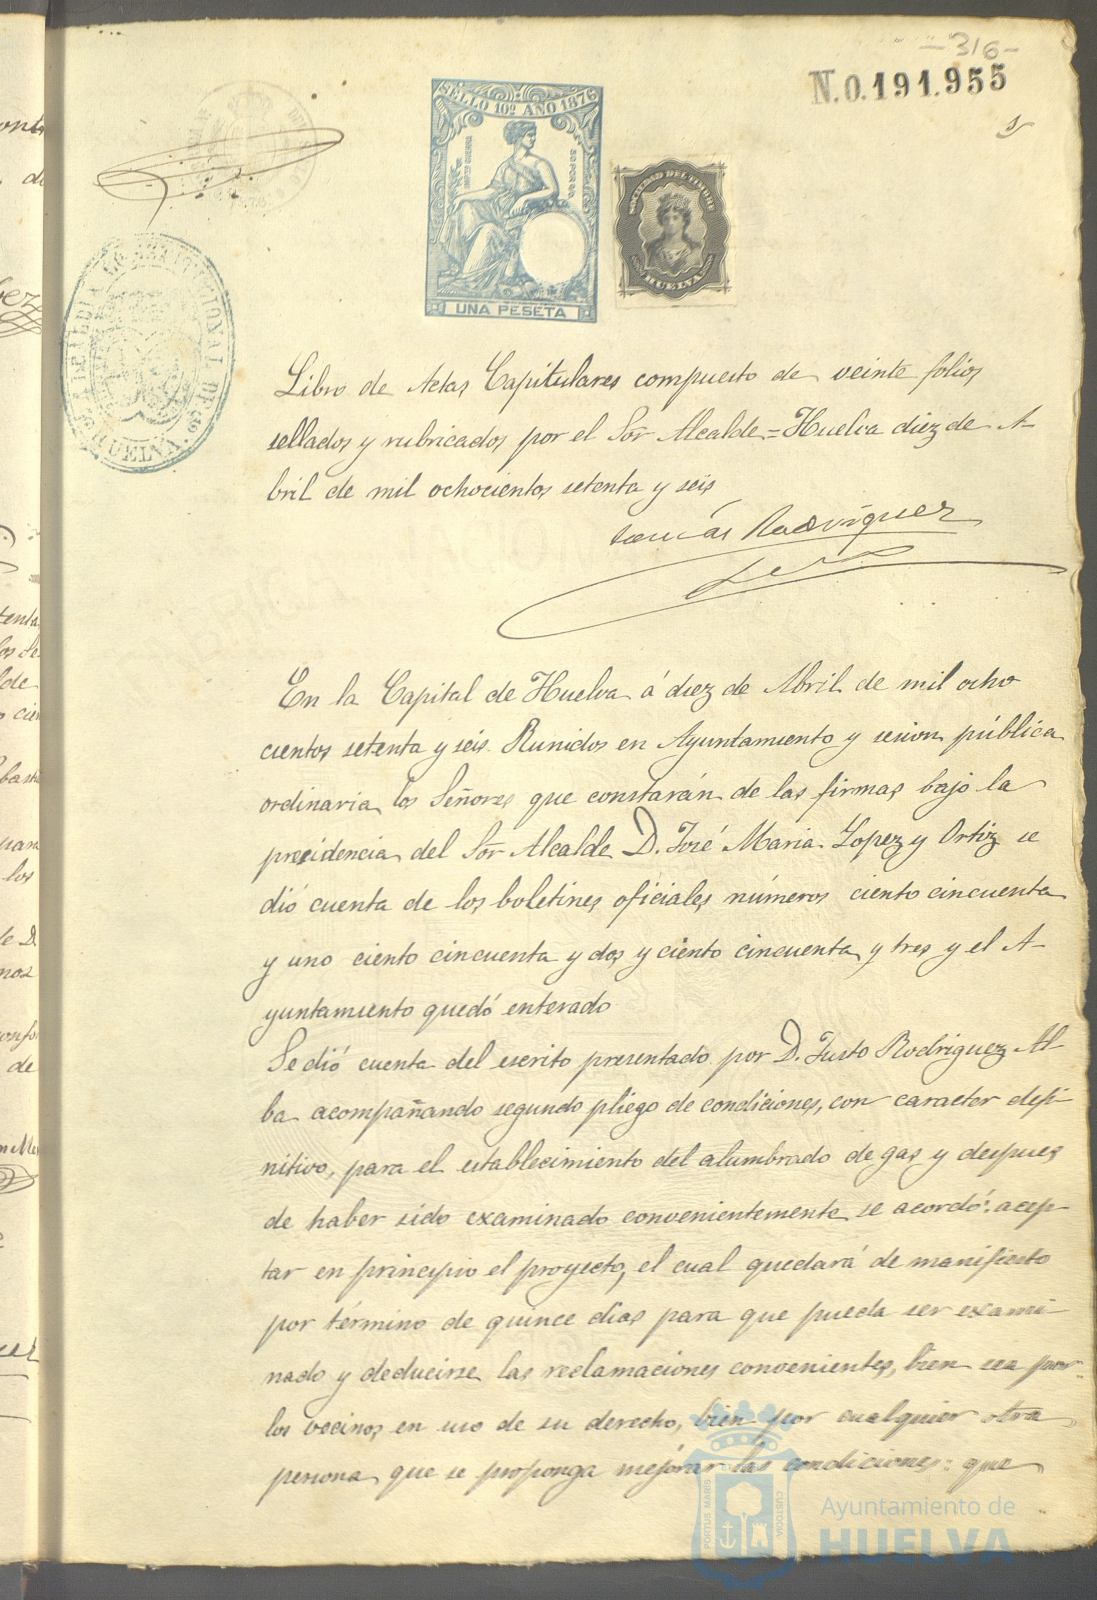 -316-
N.0.191.955
SELLO 10º AÑO 1876
UNA PESETA
SOCIEDAD DEL TIMBRE
HUELVA
ALCALDIA CONSTITUCIONAL DE
HUELVA
Libro de Actas Capitulares compuesto de veinte folios
sellados y rubricados por el Sor Alcalde = Huelva diez de A-
bril de mil ochocientos setenta y seis
Tomás Rodríguez
En la Capital de Huelva á diez de Abril de mil ocho
cientos setenta y seis. Runidos en Ayuntamiento y sesion pública
ordinaria los Señores que constarán de las firmas bajo la
presidencia del Sor Alcalde D. José Maria Lopez y Ortiz se
dió cuenta de los boletines oficiales números ciento cincuenta
y uno ciento cincuenta y dos y ciento cincuenta y tres y el A-
yuntamiento quedó enterado
Se dió cuenta del escrito presentado por D. Justo Rodriguez Al-
ba acompañando segundo pliego de condiciones, con caracter defi-
nitivo, para el establecimiento del alumbrado de gas y despues
de haber sido examinado convenientemente se acordó: acep-
tar en principio el proyecto, el cual quedará de manifiesto
por término de quince dias para que pueda ser exami-
nado y deducirse las reclamaciones convenientes, bien sea por
los vecinos en uso de su derecho, bien por cualquier otra
persona que se proponga mejorar las condiciones: que
PORTUS MARIS
CUSTODIA
Ayuntamiento de
HUELVA